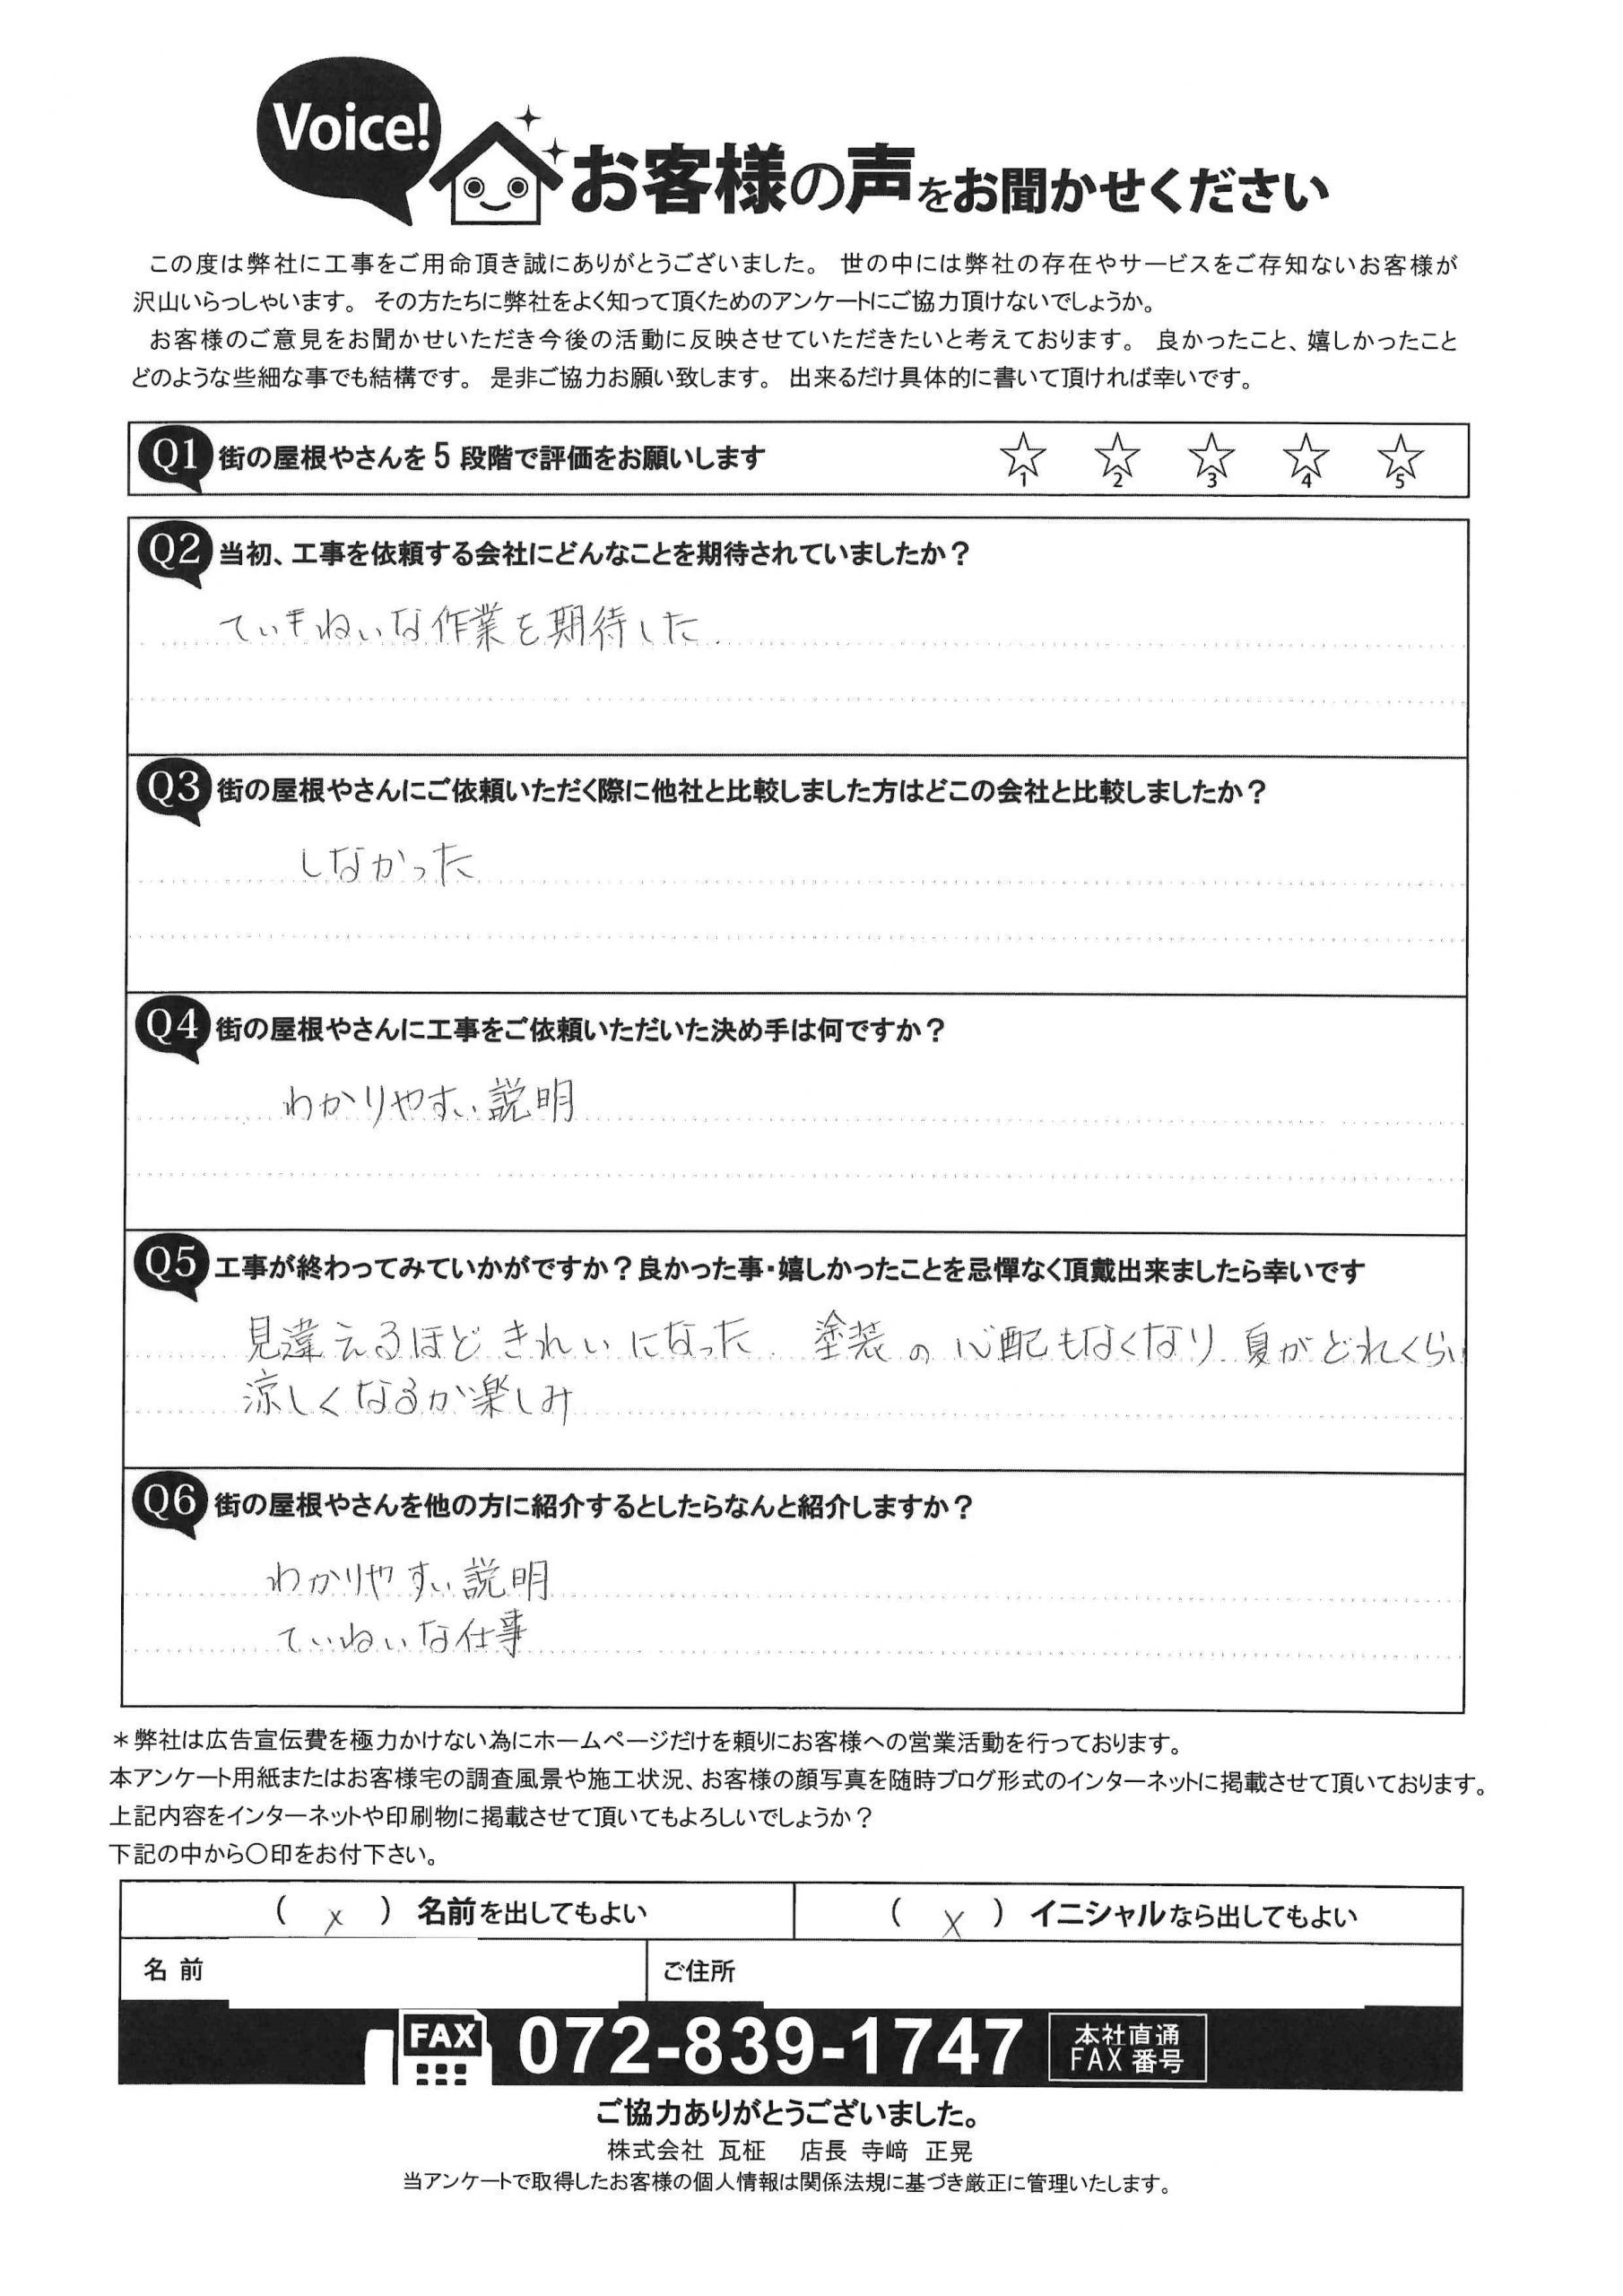 Voice!
お客様の声をお聞かせください
この度は弊社に工事をご用命頂き誠にありがとうございました。 世の中には弊社の存在やサービスをご存知ないお客様が
沢山いらっしゃいます。 その方たちに弊社をよく知って頂くためのアンケートにご協力頂けないでしょうか。
お客様のご意見をお聞かせいただき今後の活動に反映させていただきたいと考えております。 良かったこと、嬉しかったこと
どのような些細な事でも結構です。 是非ご協力お願い致します。 出来るだけ具体的に書いて頂ければ幸いです。
Q1 街の屋根やさんを 5 段階で評価をお願いします ☆1 ☆2 ☆3 ☆4 ☆5
Q2 当初、工事を依頼する会社にどんなことを期待されていましたか？
ていねいな作業を期待した.
Q3 街の屋根やさんにご依頼いただく際に他社と比較しました方はどこの会社と比較しましたか？
しなかった
Q4 街の屋根やさんに工事をご依頼いただいた決め手は何ですか？
わかりやすい説明
Q5 工事が終わってみていかがですか？良かった事・嬉しかったことを忌憚なく頂戴出来ましたら幸いです
見違えるほどきれいになった. 塗装の心配もなくなり. 夏がどれくらい
涼しくなるか楽しみ
Q6 街の屋根やさんを他の方に紹介するとしたらなんと紹介しますか？
わかりやすい説明
ていねいな仕事
＊弊社は広告宣伝費を極力かけない為にホームページだけを頼りにお客様への営業活動を行っております。
本アンケート用紙またはお客様宅の調査風景や施工状況、お客様の顔写真を随時ブログ形式のインターネットに掲載させて頂いております。
上記内容をインターネットや印刷物に掲載させて頂いてもよろしいでしょうか？
下記の中から〇印をお付下さい。
( x ) 名前を出してもよい ( x ) イニシャルなら出してもよい
名 前 ご住所
FAX 072-839-1747 本社直通
FAX 番号
ご協力ありがとうございました。
株式会社 瓦柾 店長 寺﨑 正晃
当アンケートで取得したお客様の個人情報は関係法規に基づき厳正に管理いたします。